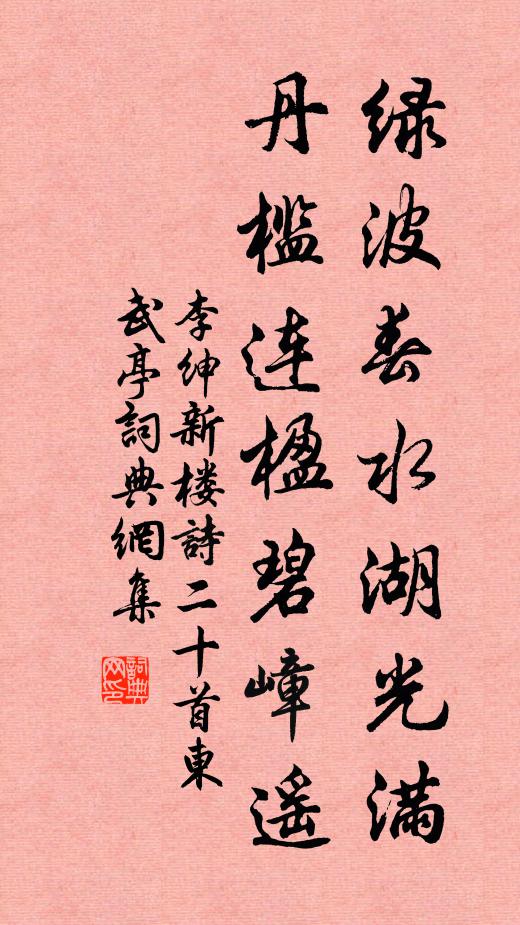 绿波春水湖光满
丹槛连楹碧嶂遥
李绅新楼詩二十首東
武亭詞典網集
詞典
网印